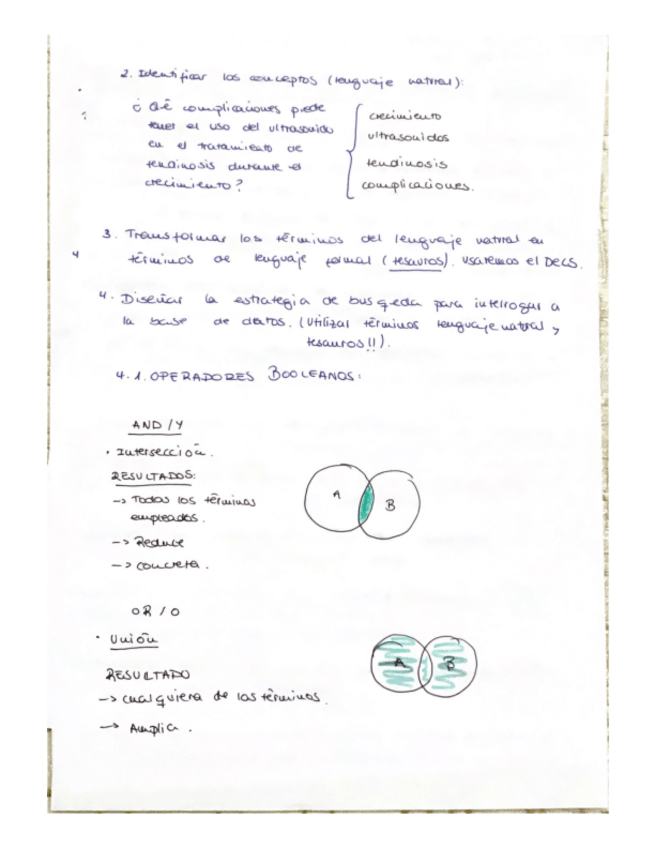 2. Identificar los conceptos (lenguaje natural):
¿ Qé complicaciones puede
tener el uso del ultrasonido
en el tratamiento de
tendinosis durante el
crecimiento?
crecimiento
ultrasonidos
tendinosis
complicaciones.
3. Transformar los términos del lenguaje natural en
términos de lenguaje formal (tesauros). Usaremos el DeCS.
4
4. Diseñar la estrategia de busqeda para interrogar a
la base de datos. (Utilizar términos lenguaje natural y
tesauros!!).
4.1. OPERADORES BOOLEANOS:
AND / Y
• Intersección.
RESULTADOS:
-> Todos los términos
empleados.
-> Reduce
-> concreta.
A
B
OR / O
• Unión
RESULTADO
-> cualquiera de los términos.
-> Amplia.
A
B